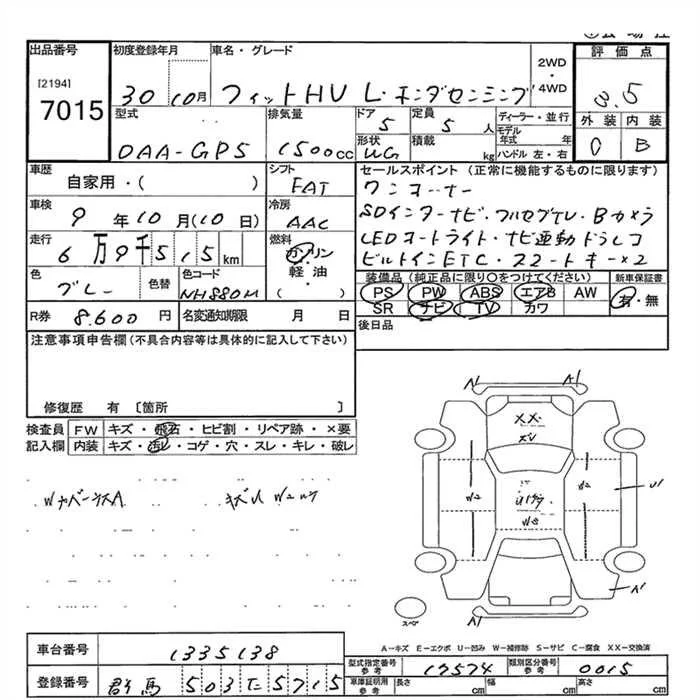 出品番号
[2194]
7015
初度登録年月
30 10月
車名・グレード
フィットHV L・ホンダセンシング
2WD・4WD
評価点
3.5
外装 内装
C B
型式
DAA-GP5
排気量
1500cc
ドア
5
定員
5人
ディーラー・並行
モデル年式 年
ハンドル 左・右
形状
WG
積載
kg
車歴
自家用・( )
シフト
FAT
セールスポイント(正常に機能するものに限ります)
ワンオーナー
SDインターナビ・フルセグTV・Bカメラ
LEDオートライト・ナビ連動ドラレコ
ビルトインETC・スマートキー×2
車検
9年10月(10日)
冷房
AAC
走行
6万9千515km
燃料
ガソリン
軽油
( )
色
グレー
色替
色コード
NH880M
装備品(純正品に限り○をつけてください) 新車保証書
PS PW ABS エアB AW
SR ナビ TV カワ
有・無
R券 8.600円
名変通知期限 月 日
後日品
注意事項申告欄(不具合内容等は具体的に記入して下さい)
修復歴 有〔箇所 〕
検査員記入欄
FW キズ・飛石・ヒビ割・リペア跡・×要
内装 キズ・汚レ・コゲ・穴・スレ・キレ・破レ
A1 A1
XX
W2 W2
U1
W3
A1
A1
スペア
A-キズ E-エクボ U-凹み W-補修跡 S-サビ C-腐食 XX-交換済
車台番号 1335138
登録番号 群馬503た5715
型式指定番号 参考 17574
類別区分番号 参考 0015
車庫証明用 参考 長さ cm 幅 cm 高さ cm